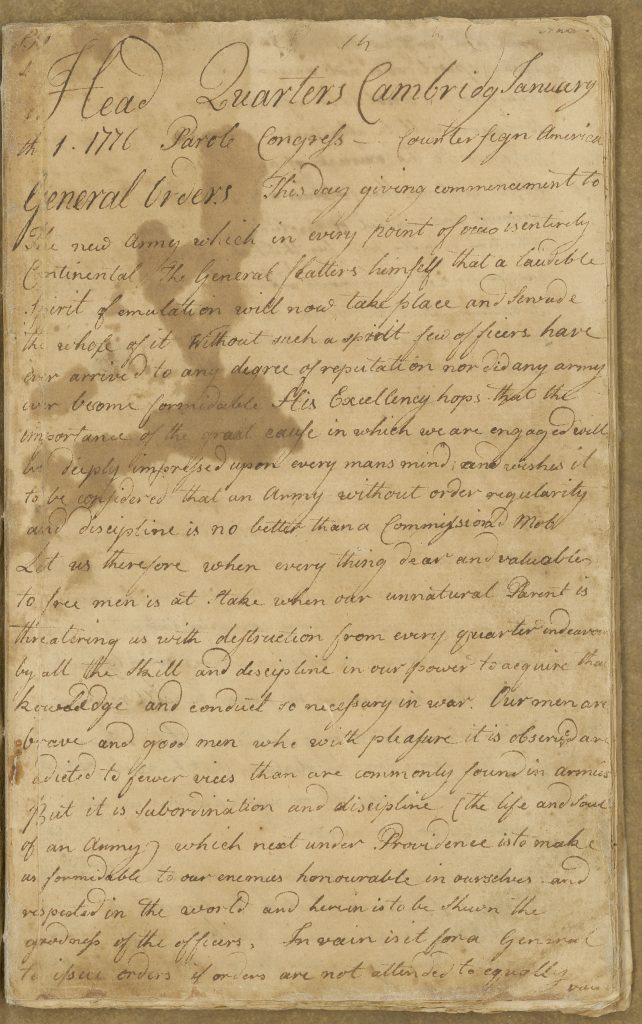 Head Quarters Cambridg January
th 1. 1776 Parole Congress — Countersign America
General Orders This day giving commencment to
The new Army which in every point of view is entirely
Continental The General flatters himself that a laudible
Spirit of emulation will now take place and
the whole of it Without such a spirit few officers have
ever arrived to any degree of reputation nor did any army
ever become formidable His Excellency hops that the
importance of the graat cause in which we are engaged will
be deeply impressed upon every mans mind; and wishes it
to be considered that an Army without order regularity
and discipline is no better than a Commissiond Mob
Let us therefore when every thing dear and valuable
to free men is at stake when our unnatural Parent is
threatering us with destruction from every quarter indeavor
by all the skill and descipline in our power to acquire that
kowledge and conduct so necessary in war. Our men are
brave and good men who with pleasure it is observd are
adicted to fewer vices than are commonly found in armies
But it is Subordination and discipline (the life and Soul
of an Army) which next under Providence is to make
us formidable to our enemies honourable in ourselves and
respected in the world and herein is to be shewn the
goodness of the officers. In vain is it for a General
to issue orders if orders are not attended to equally
vain